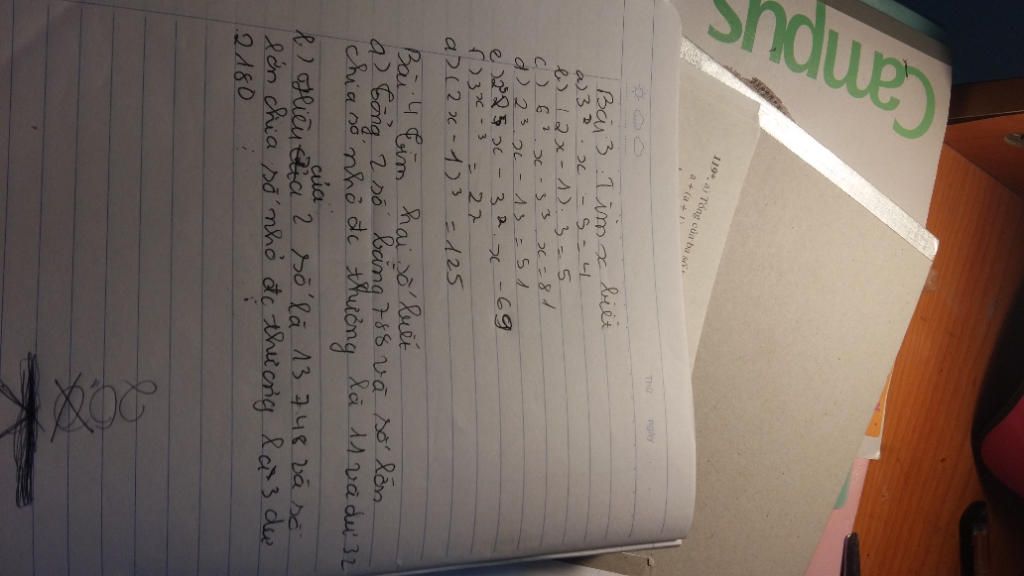 Campus
110*. a) Tổng của ba số
a + (a + 1
THỨ NGÀY
Bài 3. Tìm x biết
a) 3² . x - 9 = 4
b) (2x - 1) . 3 = 5
c) 6² . x - 3³ . x = 81
d) 2³ . x - 13 = 51
x - 3² x - 69
f) 3x - ³ = 27
a) (2x - 1)³ = 125
Bài 4 Tìm hai số biết
a) Tổng 2 số bằng 788 và số lớn
chia số nhỏ đc thương là 11 và dư 32
b) Hiệu của 2 số là 13 748 và số
lớn chia số nhỏ đc thương là 3 dư
2180